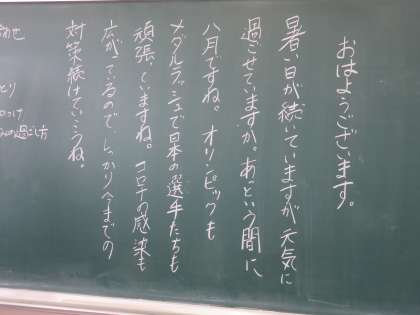 おはようございます。
暑い日が続いていますが元気に
過ごせていますか。あっという間に、
八月ですね。オリンピックも
メダルラッシュで日本の選手たちも
頑張っていますね。コロナの感染も
広がっているので、しっかり今までの
対策続けていこうね。
の過ごし方